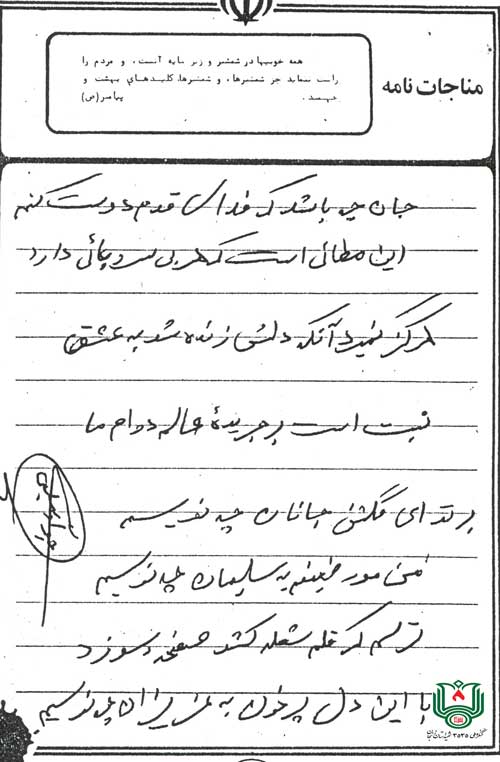 مناجات نامه
همه خوبیها در شمشیر و زیر سایه آنست، و مردم را
راست ننماید جز شمشیرها، و شمشیرها، کلیدهای بهشت و
پیامبر(ص)
جان چه باشد که فدای قدم دوست کنم
این مطائی است که هر بی سر و پائی دارد
هرگز نمیرد آنکه دلش زنده شد به عشق
ثبت است بر جریدهٔ عالم دوام ما
بر تو ای گلشن جانان چه نویسم
من مور ضعیفم به سلیمان چه نویسم
ترسم که قلم شعله کشد صفحه بسوزد
با این دل پر خون به عزیزان چه نویسم